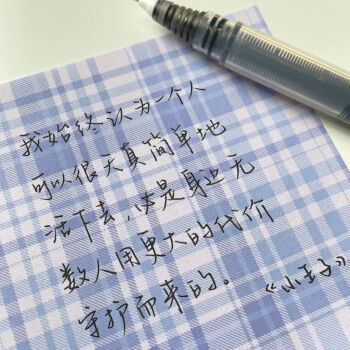 我始终认为一个人
可以很天真简单地
活下去，必是身边无
数人用更大的代价
守护而来的。
《小王子》